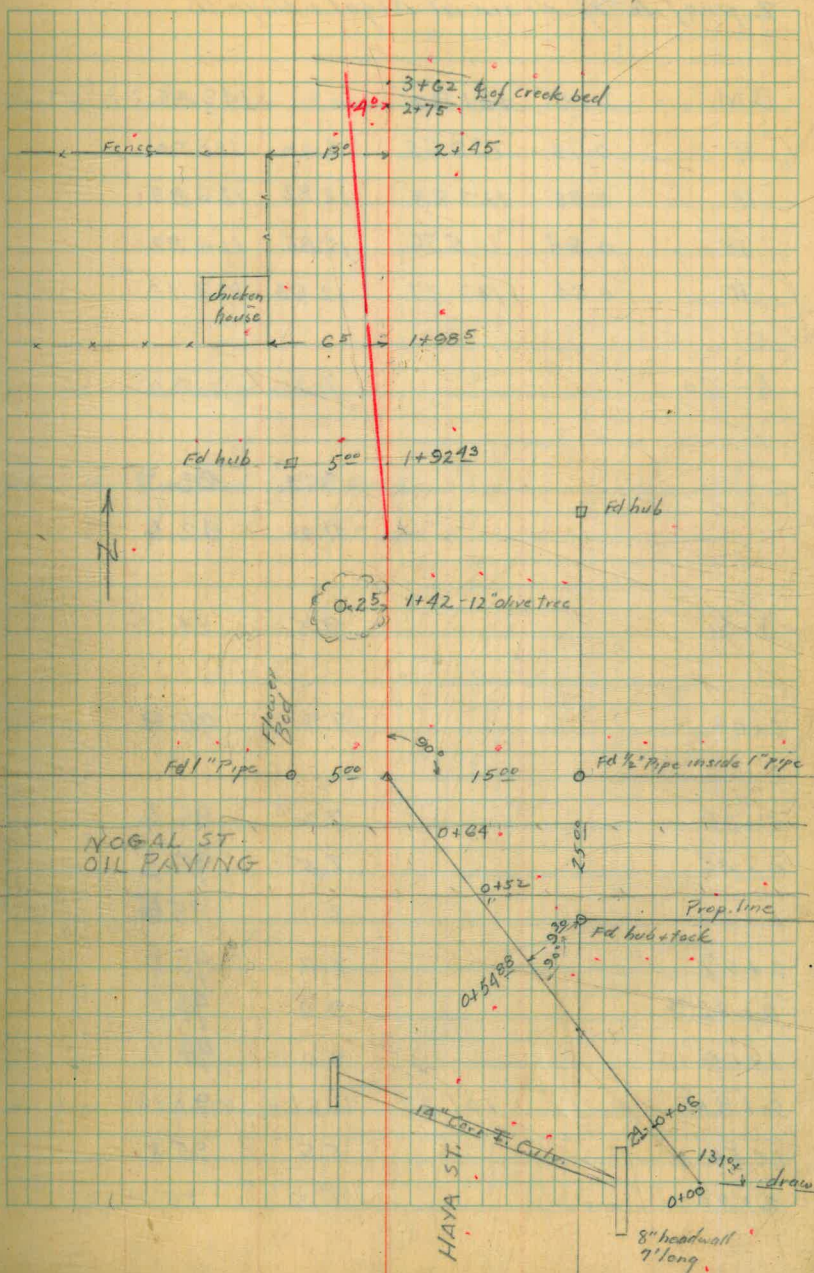 3+62 ℄ of creek bed
4º 2+75
Fence 13º 2+45
chicken
house
6⁵ 1+98⁵
Fd hub 5ºº 1+92⁴³
Fd hub
N
0.2⁵ 1+42 - 12" olive tree
Flower
Bed
90º
Fd 1" Pipe 5ºº 15ºº Fd ½" Pipe inside 1" pipe
0+64
NOGAL ST.
OIL PAVING
25ºº
0+52
Prop. line
Fd hub + tack
0+54⁸⁸
14" Corr. I. Culv.
0+08
131º±
0+00
draw
HAYA ST.
8" headwall
7' long